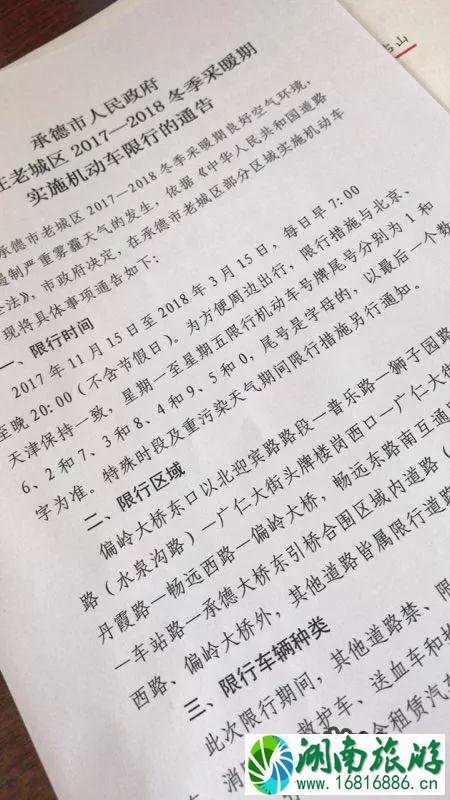 承德市人民政府
在老城区2017—2018冬季采暖期
实施机动车限行的通告
承德市老城区2017—2018冬季采暖期良好空气环境,
遏制严重雾霾天气的发生,依据《中华人民共和国道路
全法》,市政府决定,在承德市老城区部分区域实施机动车
现将具体事项通告如下:
一、限行时间
2017年11月15日至2018年3月15日,每日早7:00
至晚20:00(不含节假日)。为方便周边出行,限行措施与北京、
天津保持一致,星期一至星期五限行机动车号牌尾号分别为1和
6、2和7、3和8、4和9、5和0,尾号是字母的,以最后一个数
字为准。特殊时段及重污染天气期间限行措施另行通知。
二、限行区域
偏岭大桥东口以北迎宾路路段—普乐路—狮子园路
路(水泉沟路)—广仁大街头牌楼岗西口—广仁大街
丹霞路—畅远西路—偏岭大桥,畅远东路南互通
—车站路—承德大桥东引桥合围区域内道路(
西路、偏岭大桥外,其他道路皆属限行道路
三、限行车辆种类
此次限行期间,其他道路禁、限
救护车、送血车和
车、消
租赁汽车
湖南旅游
www.16816886.cn